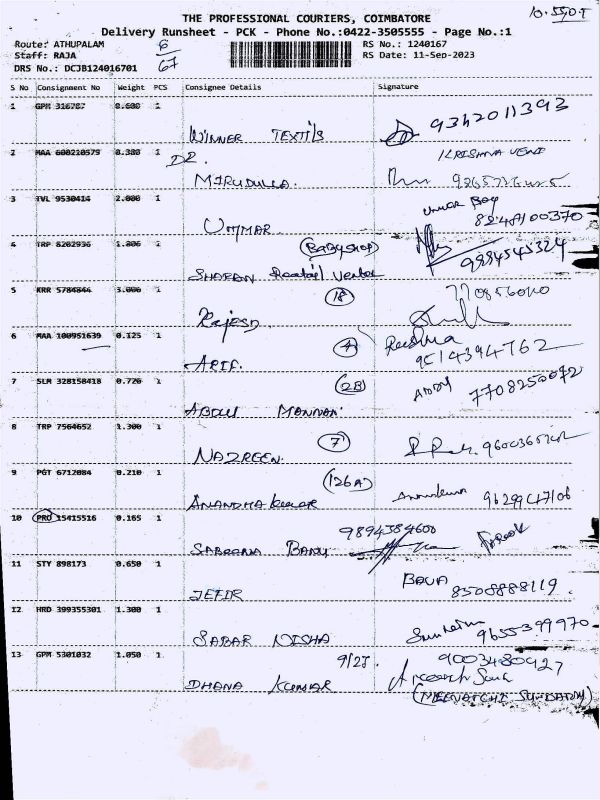 10.55
THE PROFESSIONAL COURIERS, COIMBATORE
Delivery Runsheet - PCK - Phone No.:0422-3505555 - Page No.:1
Route: ATHUPALAM 6/67 RS No.: 1240167
Staff: RAJA RS Date: 11-Sep-2023
DRS No.: DCJB124016701
S No Consignment No Weight PCS Consignee Details Signature
1 GPM 316787 0.600 1
WINNER TEXTILS 9342011393
2 MAA 600210579 0.380 1 D2. KRISHNA VENI
MIRUDULLA.
3 TVL 9530414 2.000 1
UMMAR 8248100370
4 TRP 8202936 1.806 1 (BABYSHOP)
9884545324
5 KRR 5784844 3.006 1 18
Rajesh.
6 MAA 100951639 0.125 1 4 Reshma
ARIF. 9514394762
7 SLM 328158418 0.726 1 2B
ABDUL MANNAN. 7708250072
8 TRP 7564652 1.300 1 7
NAZREEN.
9 PGT 6712084 0.210 1 (126A)
ANANDHA kumar
10 PRO 15415516 0.165 1 9894384600
SABEENA BANU
11 STY 898173 0.650 1 BAVA
JEFIR 8508888119
12 HRD 399355301 1.300 1
SABAR NISHA 9655399970
13 GPM 5301032 1.050 1 9/27. 9003480427
DHANA KUMAR
(MEENATCHI SUNDARAM)